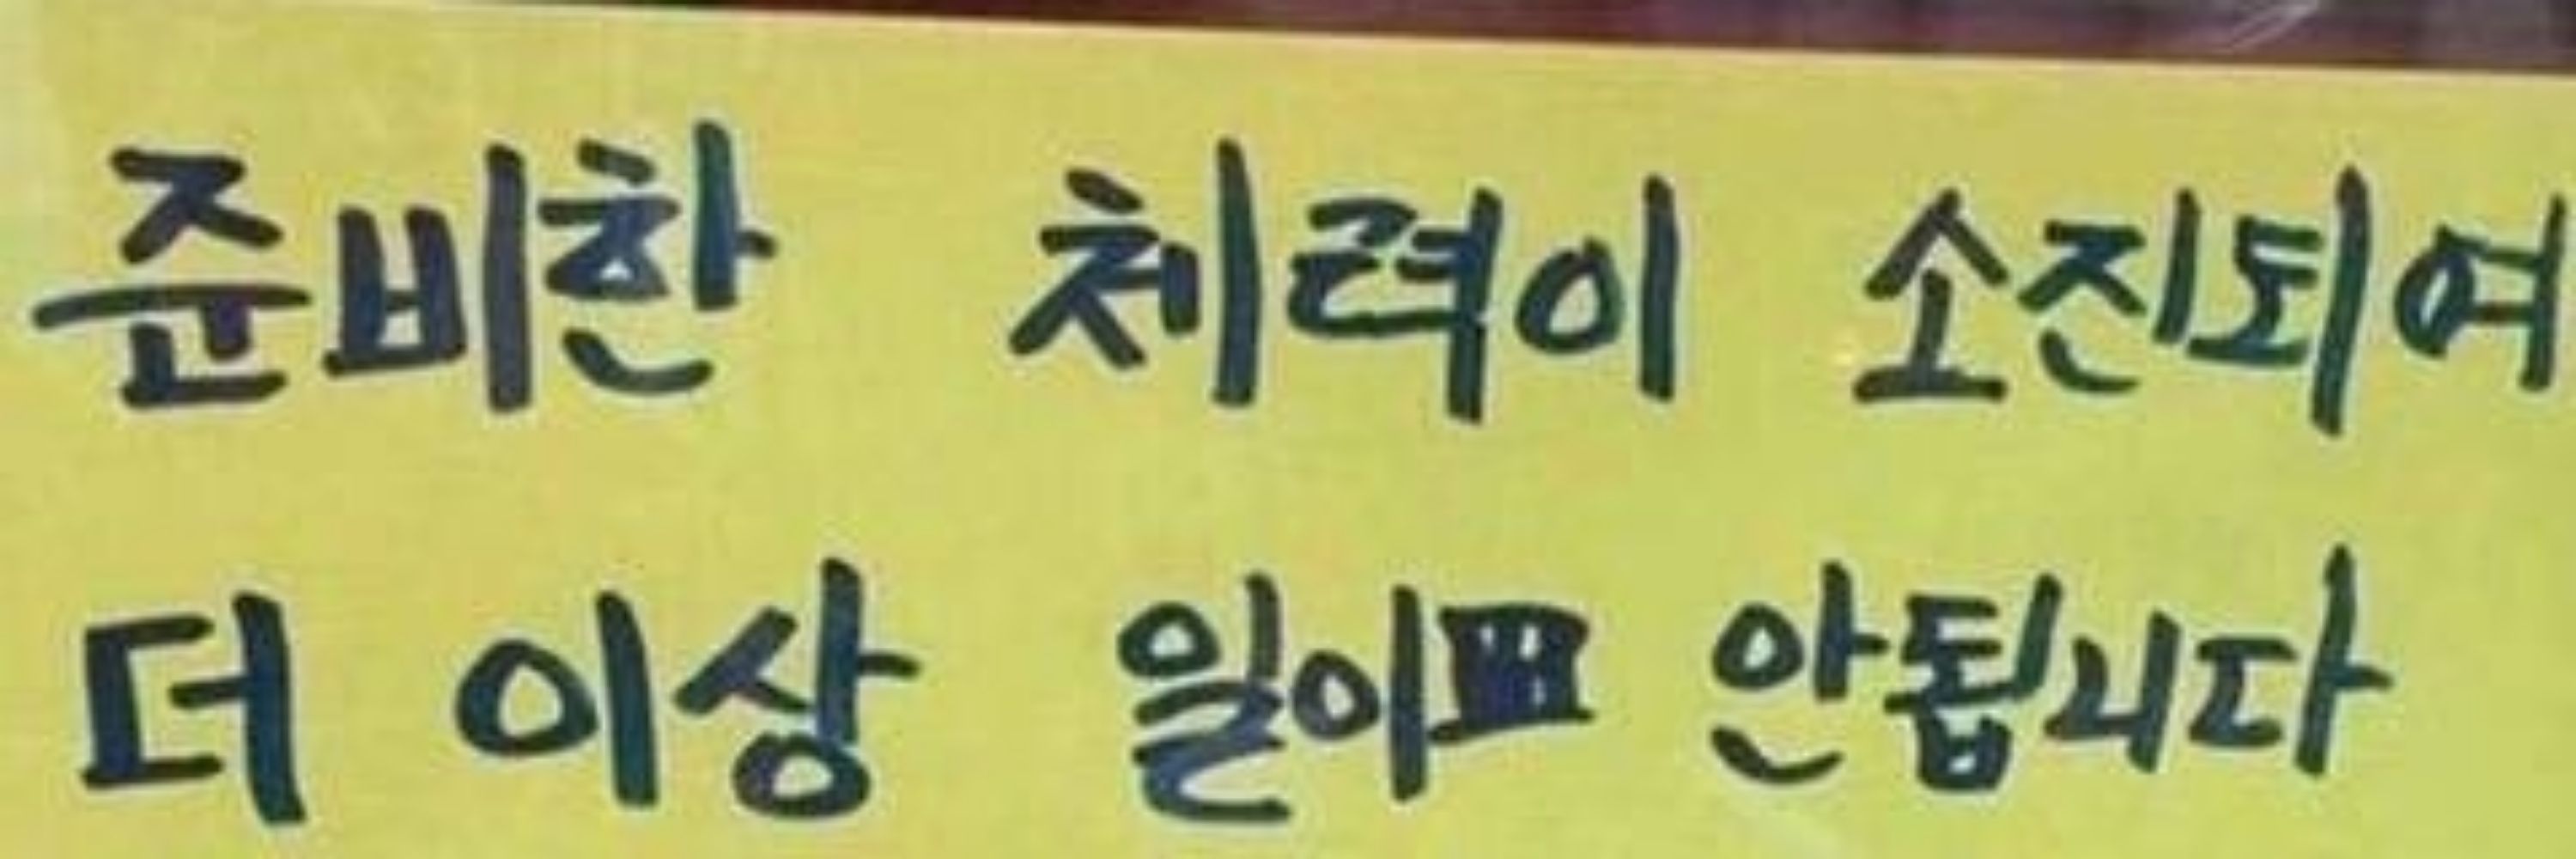 준비한 체력이 소진되여
더 이상 일이 안됩니다